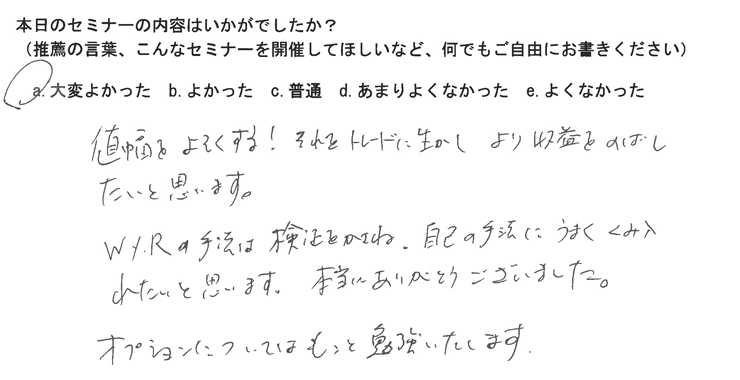 本日のセミナーの内容はいかがでしたか？
（推薦の言葉、こんなセミナーを開催してほしいなど、何でもご自由にお書きください）
a. 大変よかった b. よかった c. 普通 d. あまりよくなかった e. よくなかった
値幅をよそくする！それをトレードに生かし より収益をのばし
たいと思います。
W％Rの手法は検証をかさね、自己の手法にうまくくみ入
れたいと思います。本当にありがとうございました。
オプションについてはもっと勉強いたします．